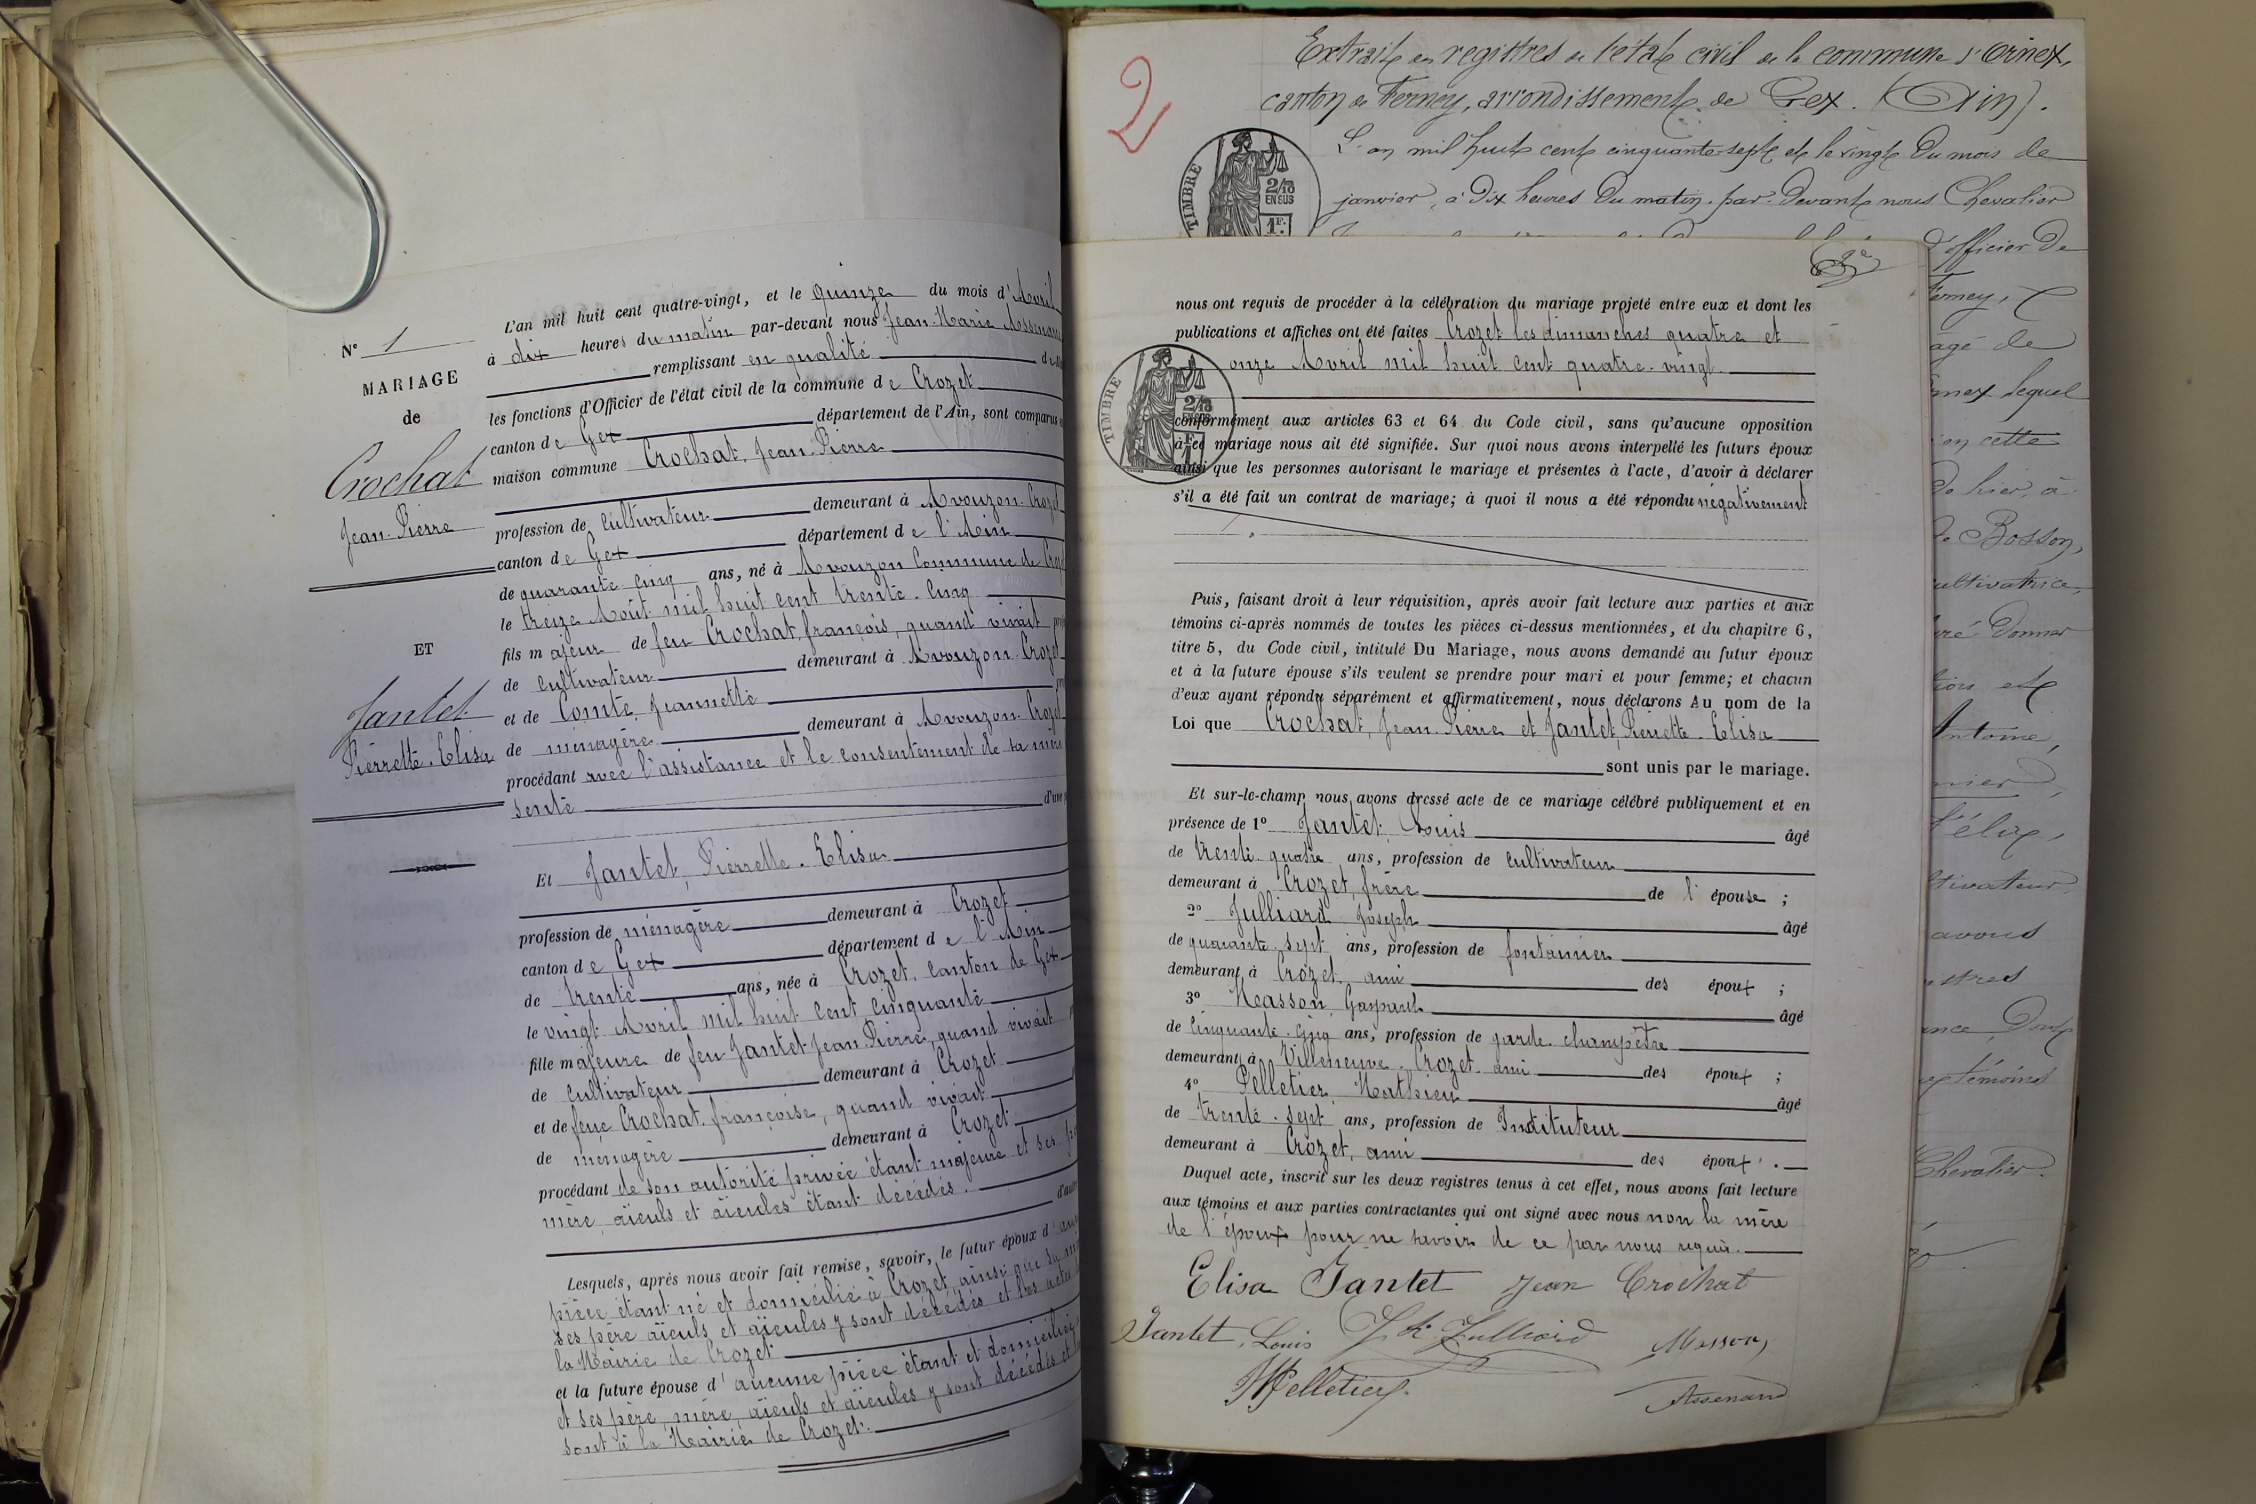 N° 1
MARIAGE
de
Crochat
Jean-Pierre
ET
Jantet
Pierrette-Elisa
L'an mil huit cent quatre-vingt, et le quinze du mois d'Avril
à dix heures du matin par-devant nous Jean-Marie
remplissant en qualité
les fonctions d'Officier de l'état civil de la commune de Crozet
canton de Gex département de l'Ain, sont comparus
maison commune Crochat, Jean-Pierre
profession de cultivateur demeurant à Avouzon-Crozet
canton de Gex département de l'Ain
de quarante cinq ans, né à Avouzon Commune de
le treize Août mil huit cent trente-cinq
fils majeur de feu Crochat, françois, quand vivait
de cultivateur demeurant à Avouzon-Crozet
et de Comte, Jeannette
de ménagère demeurant à Avouzon-Crozet
procédant avec l'assistance et le consentement de sa mère
sente d'une
Et Jantet, Pierrette-Elisa
profession de ménagère demeurant à Crozet
canton de Gex département de l'Ain
de trente ans, née à Crozet, canton de Gex
le vingt Avril mil huit cent cinquante
fille majeure de feu Jantet Jean-Pierre, quand vivait
de cultivateur demeurant à Crozet
et de feue Crochat, françoise, quand vivait
de ménagère demeurant à Crozet
procédant de son autorité privée étant majeure et ses
mère, aïeuls et aïeules étant décédés. d'autre
Lesquels, après nous avoir fait remise, savoir, le futur époux d'
pièce étant né et domicilié à Crozet, ainsi que sa
ses père aïeuls et aïeules y sont décédés et les actes
la Mairie de Crozet
et la future épouse d'aucune pièce étant et domiciliée
et ses père, mère, aïeuls et aïeules y sont décédés et
sont à la Mairie de Crozet.
2
Extrait des registres de l'état civil de la commune d'Ornex,
canton de Ferney, arrondissement de Gex. (Ain).
L'an mil huit cent cinquante-sept et le vingt du mois de
janvier, à dix heures du matin, par-devant nous Chevalier
TIMBRE
2/10
EN SUS
1F.
d'officier de
Ferney,
agé de
lequel
en cette
de hier, à
de Bosson,
cultivatrice,
donner
et
Antoine,
Félix,
avons
Dont
témoins
Chevalier.
nous ont requis de procéder à la célébration du mariage projeté entre eux et dont les
publications et affiches ont été faites Crozet les dimanches quatre et
onze Avril mil huit cent quatre-vingt
TIMBRE
2/10
EN SUS
1F.
conformément aux articles 63 et 64 du Code civil, sans qu'aucune opposition
à ce mariage nous ait été signifiée. Sur quoi nous avons interpellé les futurs époux
ainsi que les personnes autorisant le mariage et présentes à l'acte, d'avoir à déclarer
s'il a été fait un contrat de mariage; à quoi il nous a été répondu négativement
Puis, faisant droit à leur réquisition, après avoir fait lecture aux parties et aux
témoins ci-après nommés de toutes les pièces ci-dessus mentionnées, et du chapitre 6,
titre 5, du Code civil, intitulé Du Mariage, nous avons demandé au futur époux
et à la future épouse s'ils veulent se prendre pour mari et pour femme; et chacun
d'eux ayant répondu séparément et affirmativement, nous déclarons Au nom de la
Loi que Crochat, Jean-Pierre et Jantet, Pierrette-Elisa
sont unis par le mariage.
Et sur-le-champ nous avons dressé acte de ce mariage célébré publiquement et en
présence de 1° Jantet Louis âgé
de trente-quatre ans, profession de cultivateur
demeurant à Crozet, frère de l'épouse ;
2° Julliard Joseph âgé
de quarante-sept ans, profession de fontainier
demeurant à Crozet, ami des époux ;
3° Masson, Gaspard âgé
de cinquante-cinq ans, profession de garde-champêtre
demeurant à Villeneuve-Crozet, ami des époux ;
4° Pelletier, Mathieu âgé
de trente-sept ans, profession de Instituteur
demeurant à Crozet, ami des époux.
Duquel acte, inscrit sur les deux registres tenus à cet effet, nous avons fait lecture
aux témoins et aux parties contractantes qui ont signé avec nous non la mère
de l'époux pour ne savoir de ce par nous requis.
Elisa Jantet Jean Crochat
Jantet, Louis Jh Julliard Masson
MPelletier Assenard